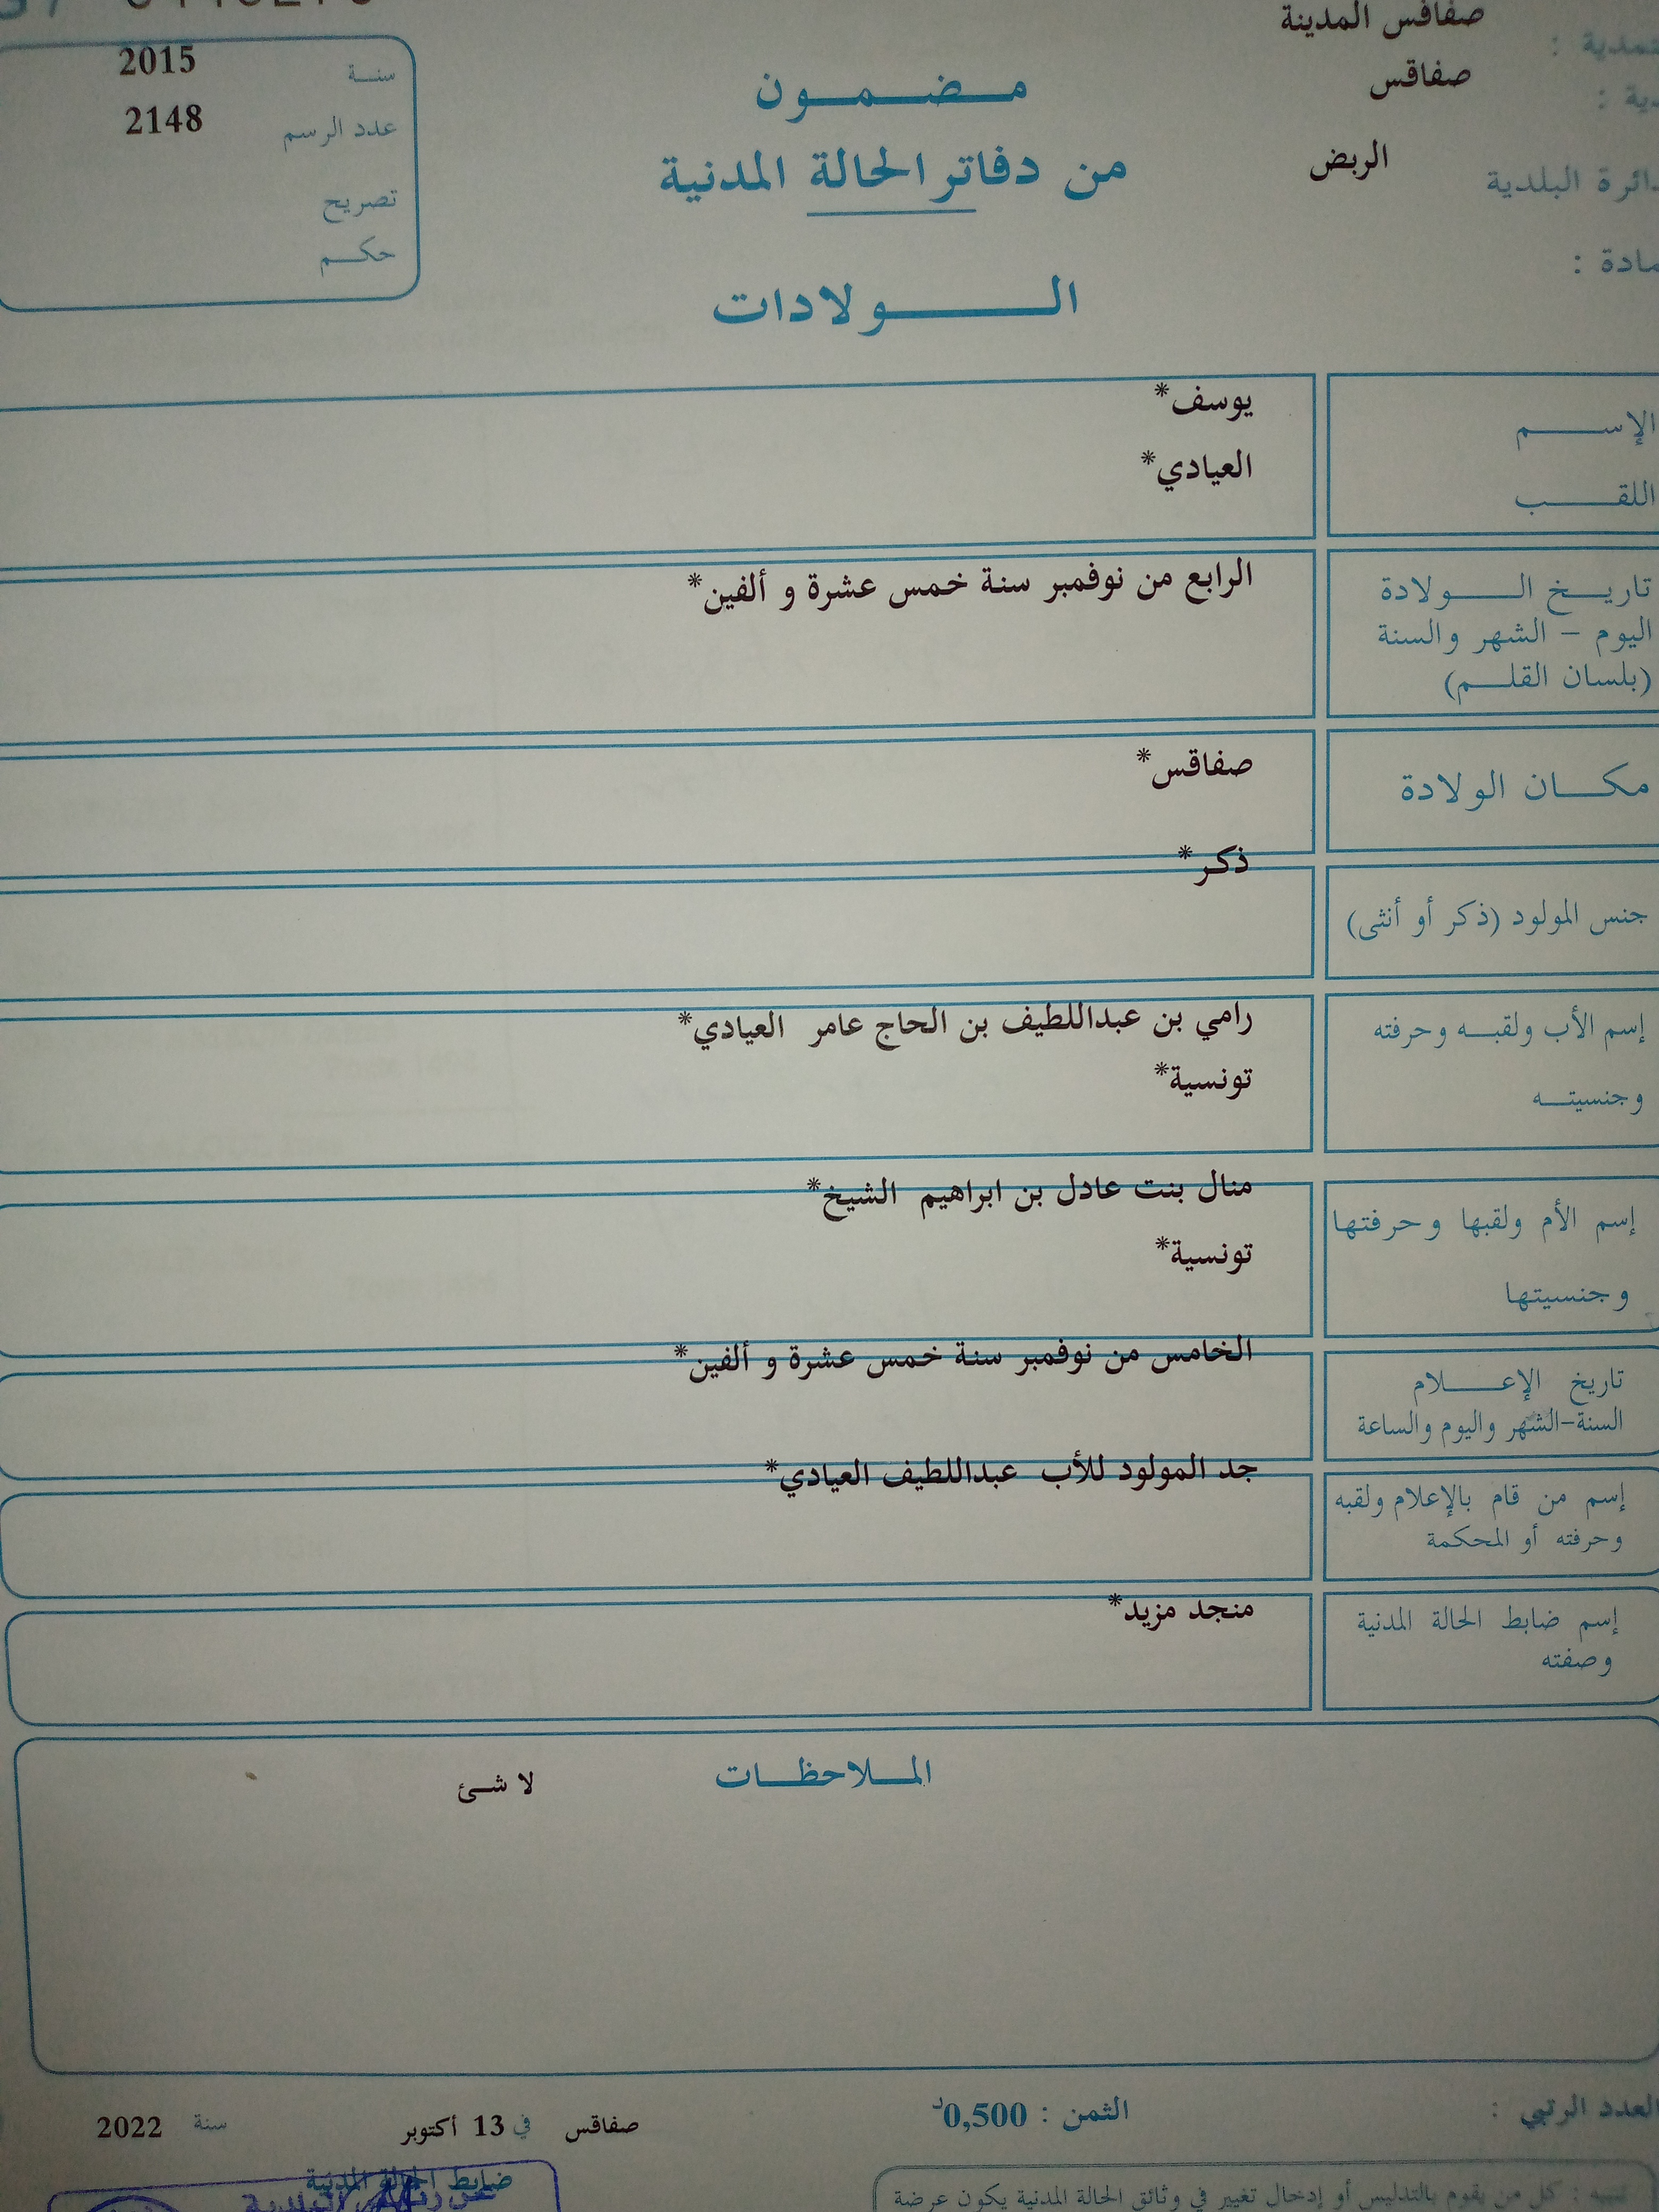 صفاقس المدينة
صفاقس
دائرة البلدية الربض
سنة 2015
عدد الرسم 2148
تصريح
حكم
مضمون
من دفاتر الحالة المدنية
الولادات
الإسم يوسف*
اللقب العيادي*
تاريخ الولادة الرابع من نوفمبر سنة خمس عشرة و ألفين*
اليوم - الشهر والسنة
(بلسان القلم)
مكان الولادة صفاقس*
جنس المولود (ذكر أو أنثى) ذكر*
إسم الأب ولقبه وحرفته رامي بن عبداللطيف بن الحاج عامر العيادي*
وجنسيته تونسية*
إسم الأم ولقبها وحرفتها منال بنت عادل بن ابراهيم الشيخ*
وجنسيتها تونسية*
تاريخ الإعلام الخامس من نوفمبر سنة خمس عشرة و ألفين*
السنة-الشهر واليوم والساعة
إسم من قام بالإعلام ولقبه جد المولود للأب عبداللطيف العيادي*
وحرفته أو المحكمة
إسم ضابط الحالة المدنية منجد مزيد*
وصفته
الملاحظات لا شئ
العدد الرتبي : الثمن : 0,500د صفاقس في 13 أكتوبر سنة 2022
ضابط الحالة المدنية
تنبيه : كل من يقوم بالتدليس أو إدخال تغيير في وثائق الحالة المدنية يكون عرضة